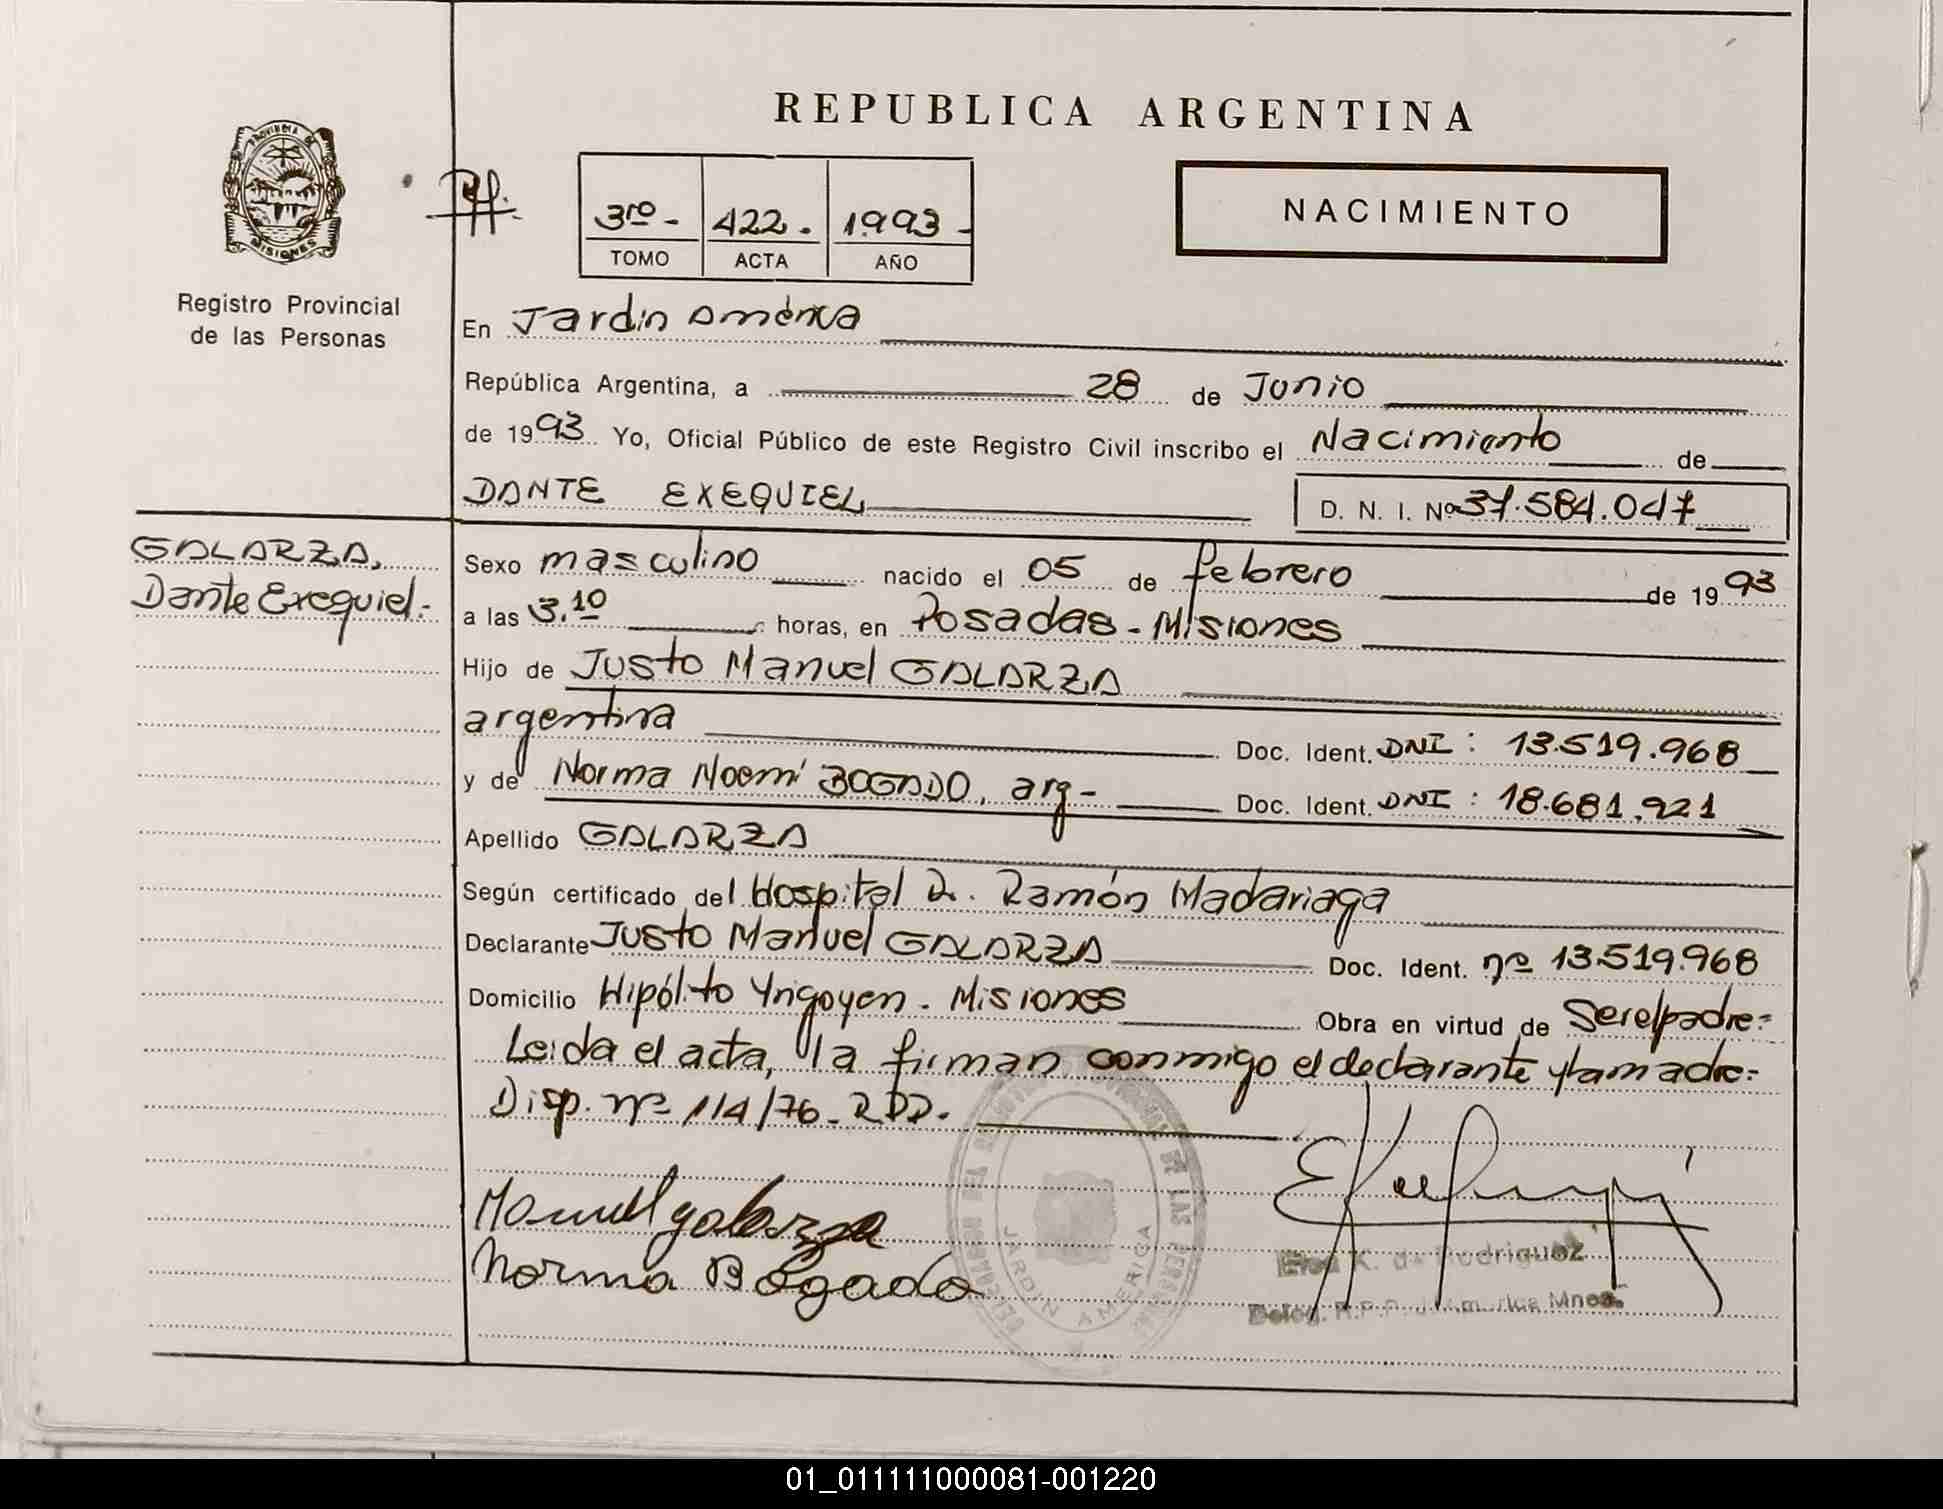 REPUBLICA ARGENTINA
PROVINCIA DE
MISIONES
Registro Provincial
de las Personas
3ro - 422 - 1993 -
TOMO ACTA AÑO
NACIMIENTO
En Jardín América
República Argentina, a 28 de Junio
de 1993 Yo, Oficial Público de este Registro Civil inscribo el Nacimiento de
DANTE EXEQUIEL D. N. I. Nº 37.584.047
GALARZA,
Dante Exequiel.-
Sexo masculino nacido el 05 de febrero de 1993
a las 3.10 horas, en Posadas - Misiones
Hijo de Justo Manuel GALARZA
argentina Doc. Ident. DNI : 13.519.968
y de Norma Noemí BOGADO, arg- Doc. Ident. DNI : 18.681.921
Apellido GALARZA
Según certificado del Hospital Dr. Ramón Madariaga
Declarante Justo Manuel GALARZA Doc. Ident. nº 13.519.968
Domicilio Hipólito Yrigoyen - Misiones Obra en virtud de Ser el padre=
Leida el acta, la firman conmigo el declarante y la madre=
Disp. nº 114/76 - RPP.
Manuel galarza
Norma Bogado
JARDIN AMERICA
K. de Rodriguez
Deleg. R.P.P. Mnes.
01_011111000081-001220